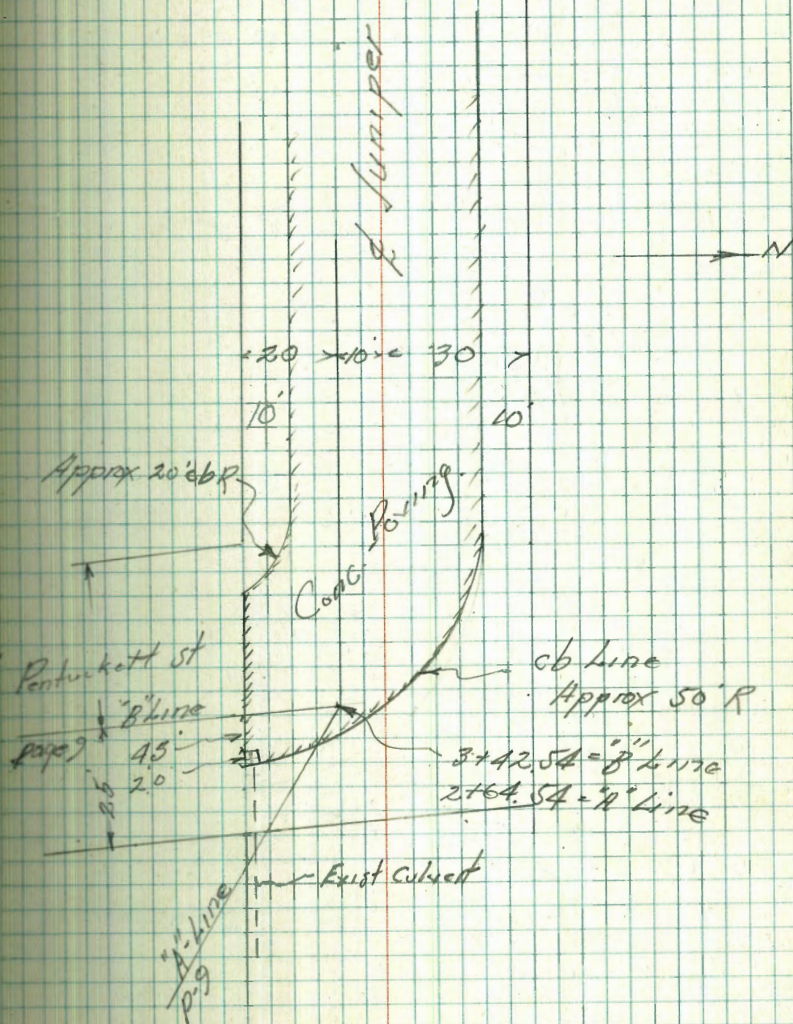 ℄ Juniper
N
20 10' 30
10' 10'
Approx 20' cb R
Conc. Paving.
Pentuckett St
"B" Line
page 9
cb Line
Approx 50' R
45
20
25'
3+42.54 = "B" Line
2+64.54 = "A" Line
Exist Culvert
"A"-Line
p-9